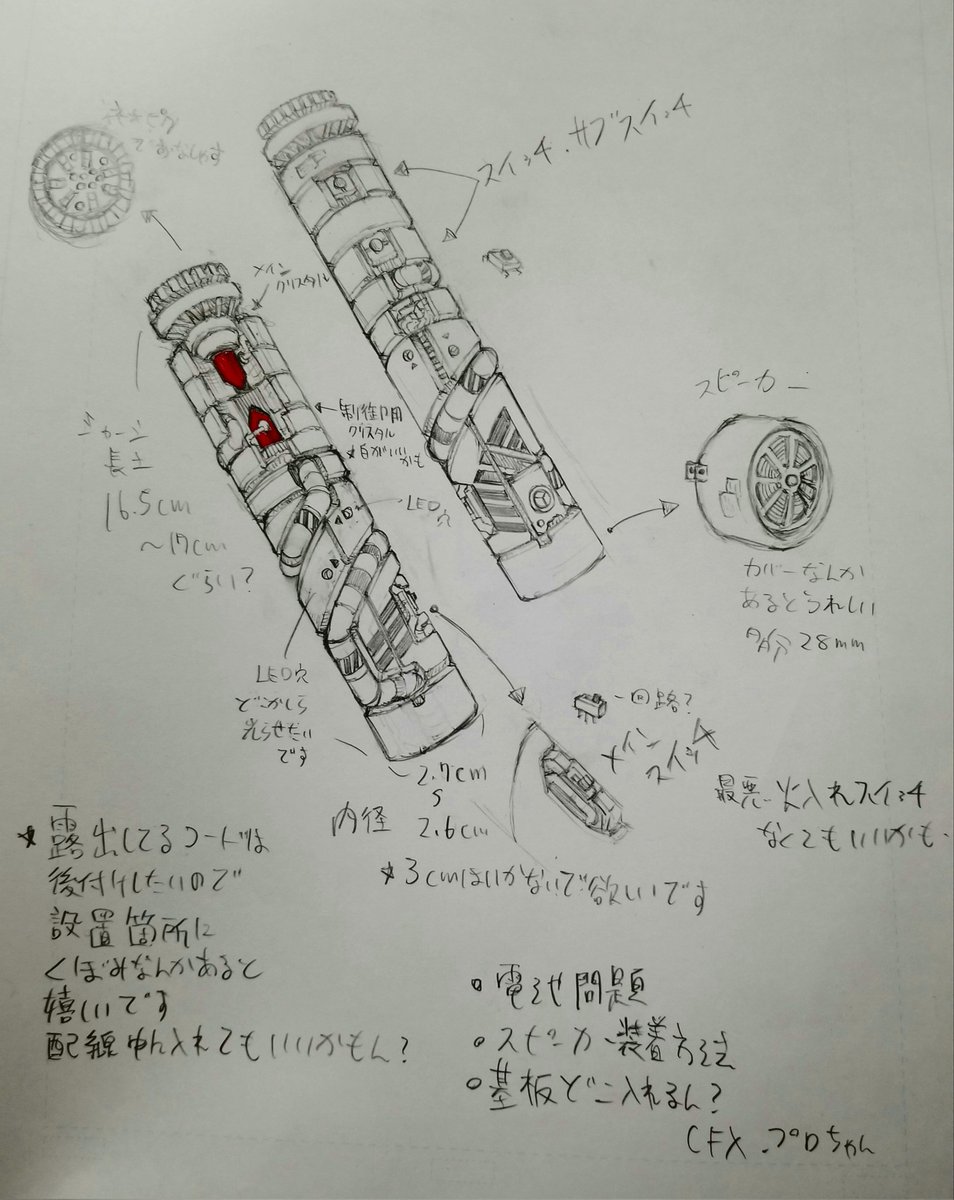 スイッチ、サブスイッチ
メイン
クリスタル
制御用
クリスタル
★白がいいかも
LED穴
長さ
16.5cm
~17cm
ぐらい?
スピーカー
カバーなんか
あるとうれしい
多分28mm
LED穴
どこかしら
光らせたい
です
回路?
メイン
スイッチ
最悪火入れスイッチ
なくてもいいかも
~2.7cm
内径
2.6cm
★3cmはいかないで欲しいです
★露出してるコードは
後付けしたいので
設置箇所に
くぼみなんかあると
嬉しいです
配線 入れてもいいかもん?
○電池問題
○スピーカー装着方法
○基板どこ入れるん?
CFX.プロちゃん